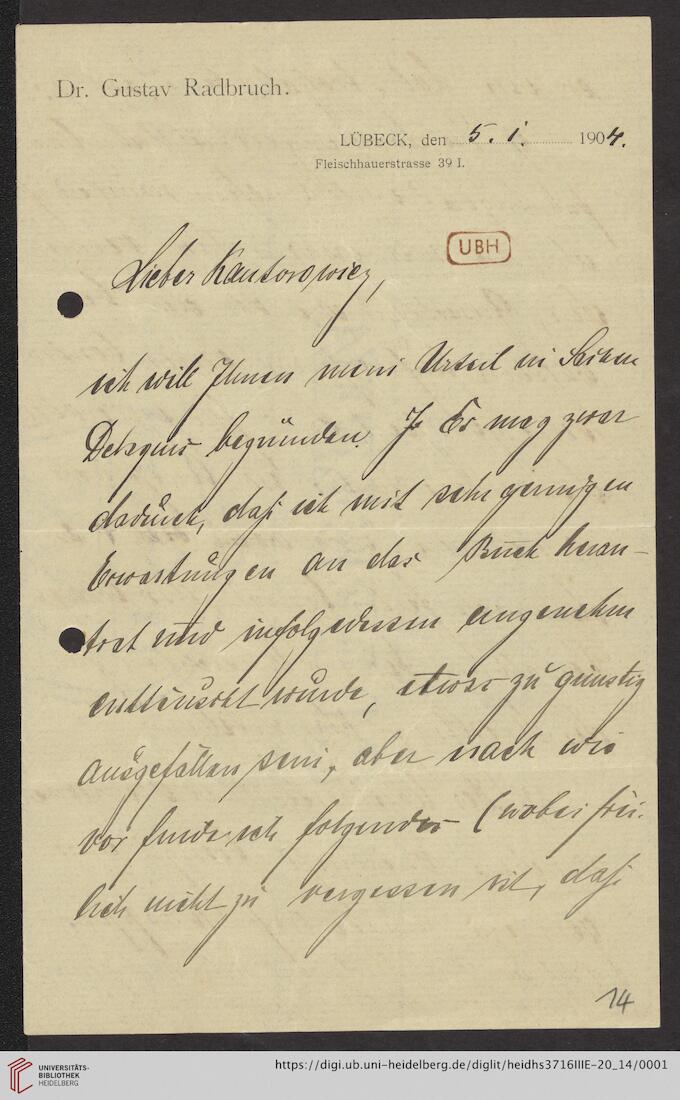 Dr. Gustav Radbruch.
LÜBECK, den 5. 1. 1904.
Fleischhauerstrasse 39 I.
UBH
Lieber Kantorowicz,
ich will Ihnen mein Urteil in Sachen
Delaquis begründen. Es mag zwar
dadurch, daß ich mit sehr geringen
Erwartungen an das Buch heran-
trat und infolgedessen angenehm
enttäuscht wurde, etwas zu günstig
ausgefallen sein, aber nach wie
vor finde ich folgendes (wobei frei-
lich nicht zu vergessen ist, daß
14
UNIVERSITÄTS-
BIBLIOTHEK
HEIDELBERG
https://digi.ub.uni-heidelberg.de/diglit/heidhs3716IIIE-20_14/0001